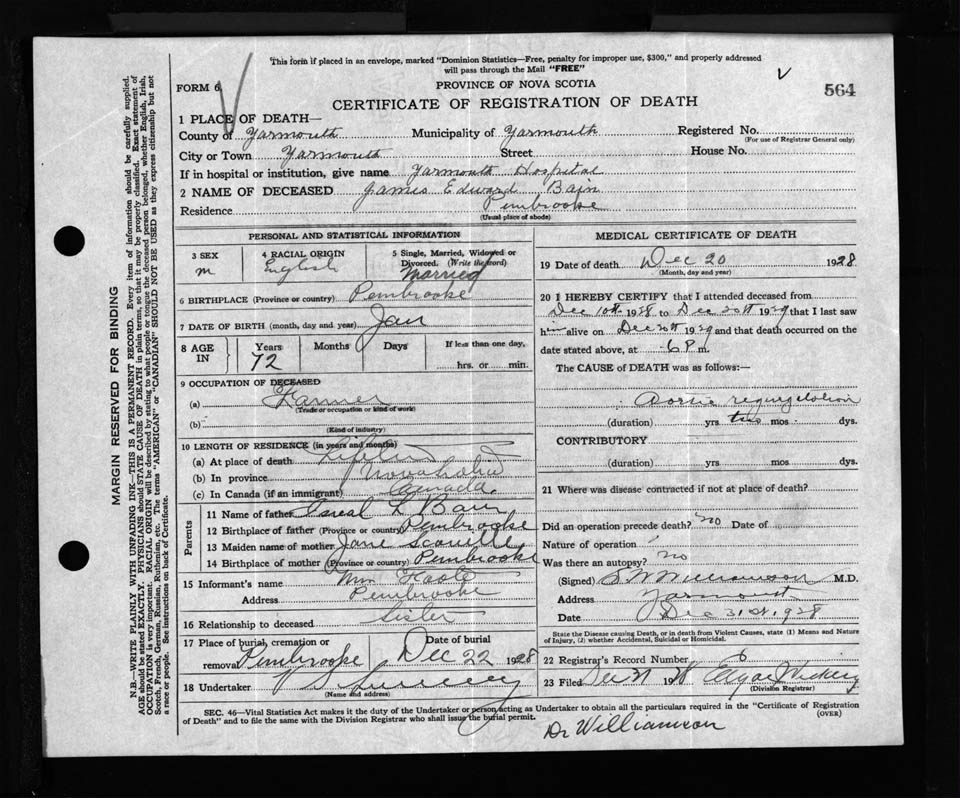 This form if placed in an envelope, marked "Dominion Statistics—Free, penalty for improper use, $300," and properly addressed
will pass through the Mail "FREE"
FORM 6
PROVINCE OF NOVA SCOTIA
564
CERTIFICATE OF REGISTRATION OF DEATH
1 PLACE OF DEATH—
County of Yarmouth Municipality of Yarmouth Registered No.
(For use of Registrar General only)
City or Town Yarmouth Street House No.
If in hospital or institution, give name Yarmouth Hospital
2 NAME OF DECEASED James Edward Bain
Residence Pembrooke
(Usual place of abode)
PERSONAL AND STATISTICAL INFORMATION
3 SEX 4 RACIAL ORIGIN 5 Single, Married, Widowed or
Divorced. (Write the word)
m English Married
6 BIRTHPLACE (Province or country) Pembrooke
7 DATE OF BIRTH (month, day and year) Jan
8 AGE IN Years Months Days If less than one day,
72 hrs. or min.
9 OCCUPATION OF DECEASED
(a) Farmer
(Trade or occupation or kind of work)
(b)
(Kind of industry)
10 LENGTH OF RESIDENCE (in years and months)
(a) At place of death
(b) In province
(c) In Canada (if an immigrant) Canada
Parents
11 Name of father L Bain
12 Birthplace of father (Province or country) Pembrooke
13 Maiden name of mother Jane
14 Birthplace of mother (Province or country) Pembrooke
15 Informant's name
Address Pembrooke
16 Relationship to deceased Sister
17 Place of burial, cremation or Date of burial
removal Pembrooke Dec 22 1928
18 Undertaker
(Name and address)
MEDICAL CERTIFICATE OF DEATH
19 Date of death Dec 20 1928
(Month, day and year)
20 I HEREBY CERTIFY that I attended deceased from
Dec 10th 1928 to Dec 20th 1929 that I last saw
him alive on Dec 20th 1929 and that death occurred on
date stated above, at 6 P m.
The CAUSE OF DEATH was as follows:—
Aortic regurgitation
(duration) yrs mos. dys.
CONTRIBUTORY
(duration) yrs. mos. dys.
21 Where was disease contracted if not at place of death?
Did an operation precede death? no Date of
Nature of operation
Was there an autopsy? no
(Signed) Williamson M.D.
Address Yarmouth
Date Dec 31st 1928
State the Disease causing Death, or in death from Violent Causes, state (1) Means and Nature
of Injury, (2) whether Accidental, Suicidal or Homicidal.
22 Registrar's Record Number
23 Filed Dec 31 1928 Edgar
(Division Registrar)
SEC. 46—Vital Statistics Act makes it the duty of the Undertaker or person acting as Undertaker to obtain all the particulars required in the "Certificate of Registration
of Death" and to file the same with the Division Registrar who shall issue the burial permit.
(OVER)
Dr Williamson
MARGIN RESERVED FOR BINDING
N.B.—WRITE PLAINLY WITH UNFADING INK—THIS IS A PERMANENT RECORD. Every item of information should be carefully supplied.
AGE should be stated EXACTLY. PHYSICIANS should STATE CAUSE OF DEATH in plain terms, so that it may be properly classified. Exact statement of
OCCUPATION is very important. RACIAL ORIGIN will be described by stating to what people or tongue the deceased person belonged, whether English, Irish,
Scotch, French, German, Russian, Ruthenian, etc. The terms "AMERICAN" or "CANADIAN" SHOULD NOT BE USED as they express citizenship but not
a race or people. See instructions on back of Certificate.